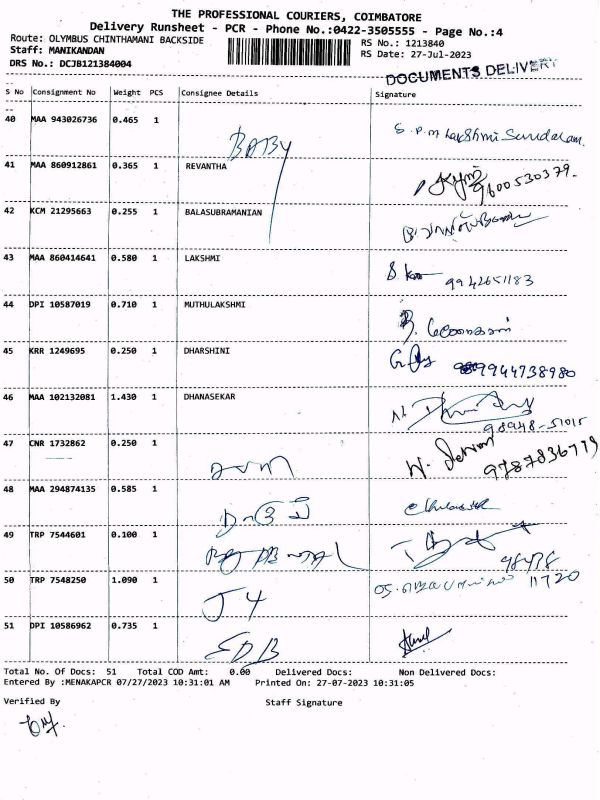 THE PROFESSIONAL COURIERS, COIMBATORE
Delivery Runsheet - PCR - Phone No.:0422-3505555 - Page No.:4
Route: OLYMBUS CHINTHAMANI BACKSIDE RS No.: 1213840
Staff: MANIKANDAN RS Date: 27-Jul-2023
DRS No.: DCJB121384004
DOCUMENTS DELIVERY
S No Consignment No Weight PCS Consignee Details Signature
40 MAA 943026736 0.465 1 BABY S. P. M Lakshmi Sundaram.
41 MAA 860912861 0.365 1 REVANTHA 9600530379.
42 KCM 21295663 0.255 1 BALASUBRAMANIAN
43 MAA 860414641 0.580 1 LAKSHMI 9942651183
44 DPI 10587019 0.710 1 MUTHULAKSHMI
45 KRR 1249695 0.250 1 DHARSHINI 9944738980
46 MAA 102132081 1.430 1 DHANASEKAR 98948-51015
47 CNR 1732862 0.250 1 9787836779
48 MAA 294874135 0.585 1
49 TRP 7544601 0.100 1 98478
50 TRP 7548250 1.090 1 J4 11720
51 DPI 10586962 0.735 1 EDB
Total No. Of Docs: 51 Total COD Amt: 0.00 Delivered Docs: Non Delivered Docs:
Entered By :MENAKAPCR 07/27/2023 10:31:01 AM Printed On: 27-07-2023 10:31:05
Verified By Staff Signature